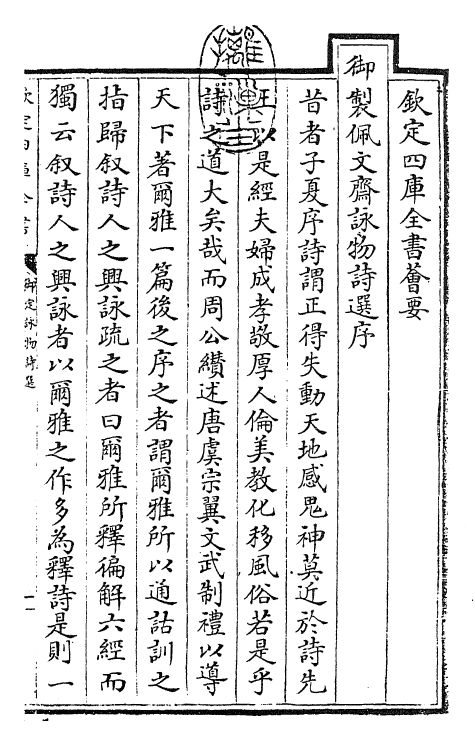 欽定四庫全書薈要
御製佩文齋詠物詩選序
昔者子夏序詩謂正得失動天地感鬼神莫近於詩先
王以是經夫婦成孝敬厚人倫美教化移風俗若是乎
詩之道大矣哉而周公纘述唐虞宗翼文武制禮以導
天下著爾雅一篇後之序之者謂爾雅所以通詁訓之
指歸叙詩人之興詠疏之者曰爾雅所釋徧解六經而
獨云叙詩人之興詠者以爾雅之作多為釋詩是則一
欽定四庫全書
御定詠物詩選
一